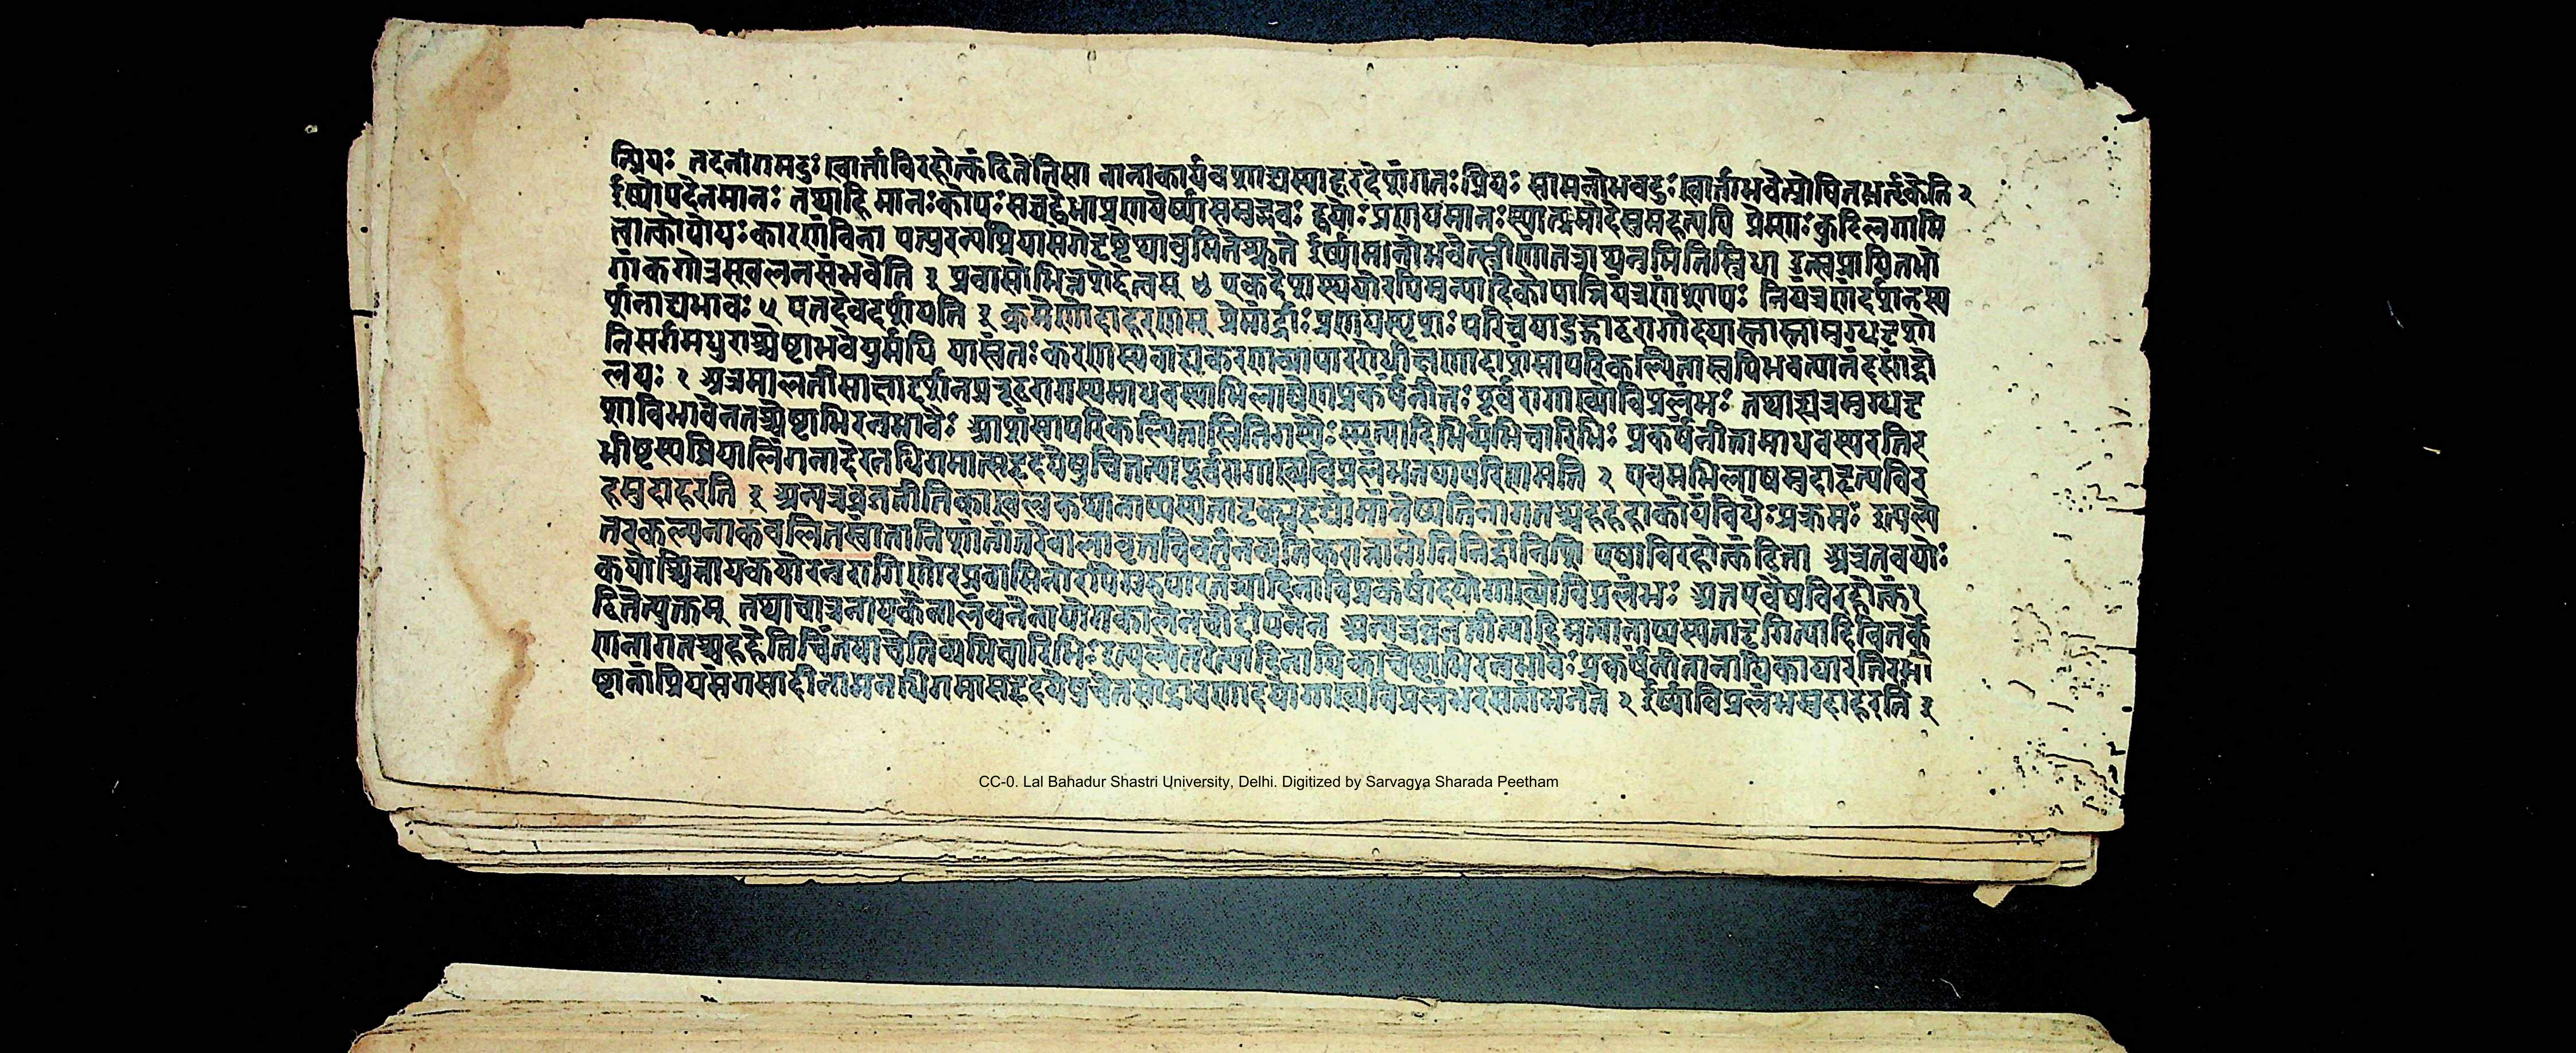 न्प्रियः तदनांगमदुःखार्ता विरहोत्कंठितेतिसा नानाकार्यवशाद्यस्यादूरदेशंगतः प्रियः सामनोभवदुःखार्ताभवेत्प्रोषितभर्तृकेति २
ईर्ष्यापदेनमानः तथाहि मानःकोपःसचद्वेधाप्रणयेर्ष्यासमुद्भवः द्वयोःप्रणयमानःस्यात्प्रमोदेसुमहत्यपि प्रेम्णःकुटिलगामि
त्वात्कोपोयःकारणंविना पत्युरन्यप्रियासंगेदृष्टेप्यानुमितेश्रुते ईर्ष्यामानोभवेत्स्त्रीणांतत्राप्यनुमितिस्त्रिधा उत्स्वप्नायितभो
गांकगोत्रस्खलनसंभवेति इ प्रवासोभिन्नदेशत्वम् ४ एकदेशस्थयोरपिमुन्यादिकोपान्नियंत्रणंशापः नियंत्रणंदर्शनस्य
र्शनाद्यभावः ५ एतदेवदर्शयति इ क्रमेणोदाहरणम् प्रेमार्द्राःप्रणयस्पृशःपरिचयादुद्गाढरागोदयास्तास्तामुग्धदृशो
निसर्गमधुराश्चेष्टाभवेयुर्मयि यास्वंतःकरणस्यबाह्यकरणव्यापाररोधीक्षणादाशंसापरिकल्पितास्वपिभवत्यानंदसांद्रो
लयः २ अत्रमालतीसाक्षाद्दर्शनप्ररूढरागस्यमाधवस्याभिलाषेणप्रकर्षनीतः पूर्वरागाख्योविप्रलंभः तथाह्यत्रमुग्धदृ
शाविभावेनतच्चेष्टाभिरनुभावैः आशंसापरिकल्पितास्वितिगम्यैःस्मृत्यादिभिर्व्यभिचारिभिः प्रकर्षनीतामाधवस्यरतिर
भीष्टस्यप्रियालिंगनादेरनधिगमात्सहृदयेषुचितन्यापूर्वरागाख्यविप्रलंभतयापरिणमति २ एवमभिलाषमुदाहृत्यविर
हमुदाहरति इ अन्यत्रव्रजतीतिकाखलुकथानाप्यस्यतादृक्सुहृद्योमांनेच्छतिनागतश्चहहहाकोयंविधेःप्रक्रमः इत्यल्पे
तरकल्पनाकवलितस्वांतानिशांतांतरेबालावृत्तविवर्तनव्यतिकरानाप्नोतिनिद्रांनिशि एषाविरहोत्कंठिता अत्रतवयोः
कयोश्चिन्नायकयोरनुरागिणोरप्रवासिनोरपिगुरुपारतंत्र्यादिनाविप्रकर्षादयोगाख्योविप्रलंभः अतएवैषविरहोत्कं
ठितेत्युक्तम् तथाचात्रनायकेनालंबनेनायोगकालेनचोद्दीपनेन अन्यत्रव्रजतीत्यादिमत्यानाप्यस्यतादृगित्यादिवितर्के
णनागतश्चहहेतिचिंतयाचेतिव्यभिचारिभिःइत्यल्पेतरेत्यादिनायिकाचेष्टाभिरनुभावैःप्रकर्षनीतानायिकायारतिरभी
ष्टानांप्रियसंगमादीनामनधिगमासहृदयेषुचेतसाद्रावणादयोगाख्यविप्रलंभरसतांभजते २ ईर्ष्याविप्रलंभमुदाहरति इ
CC-0. Lal Bahadur Shastri University, Delhi. Digitized by Sarvagya Sharada Peetham